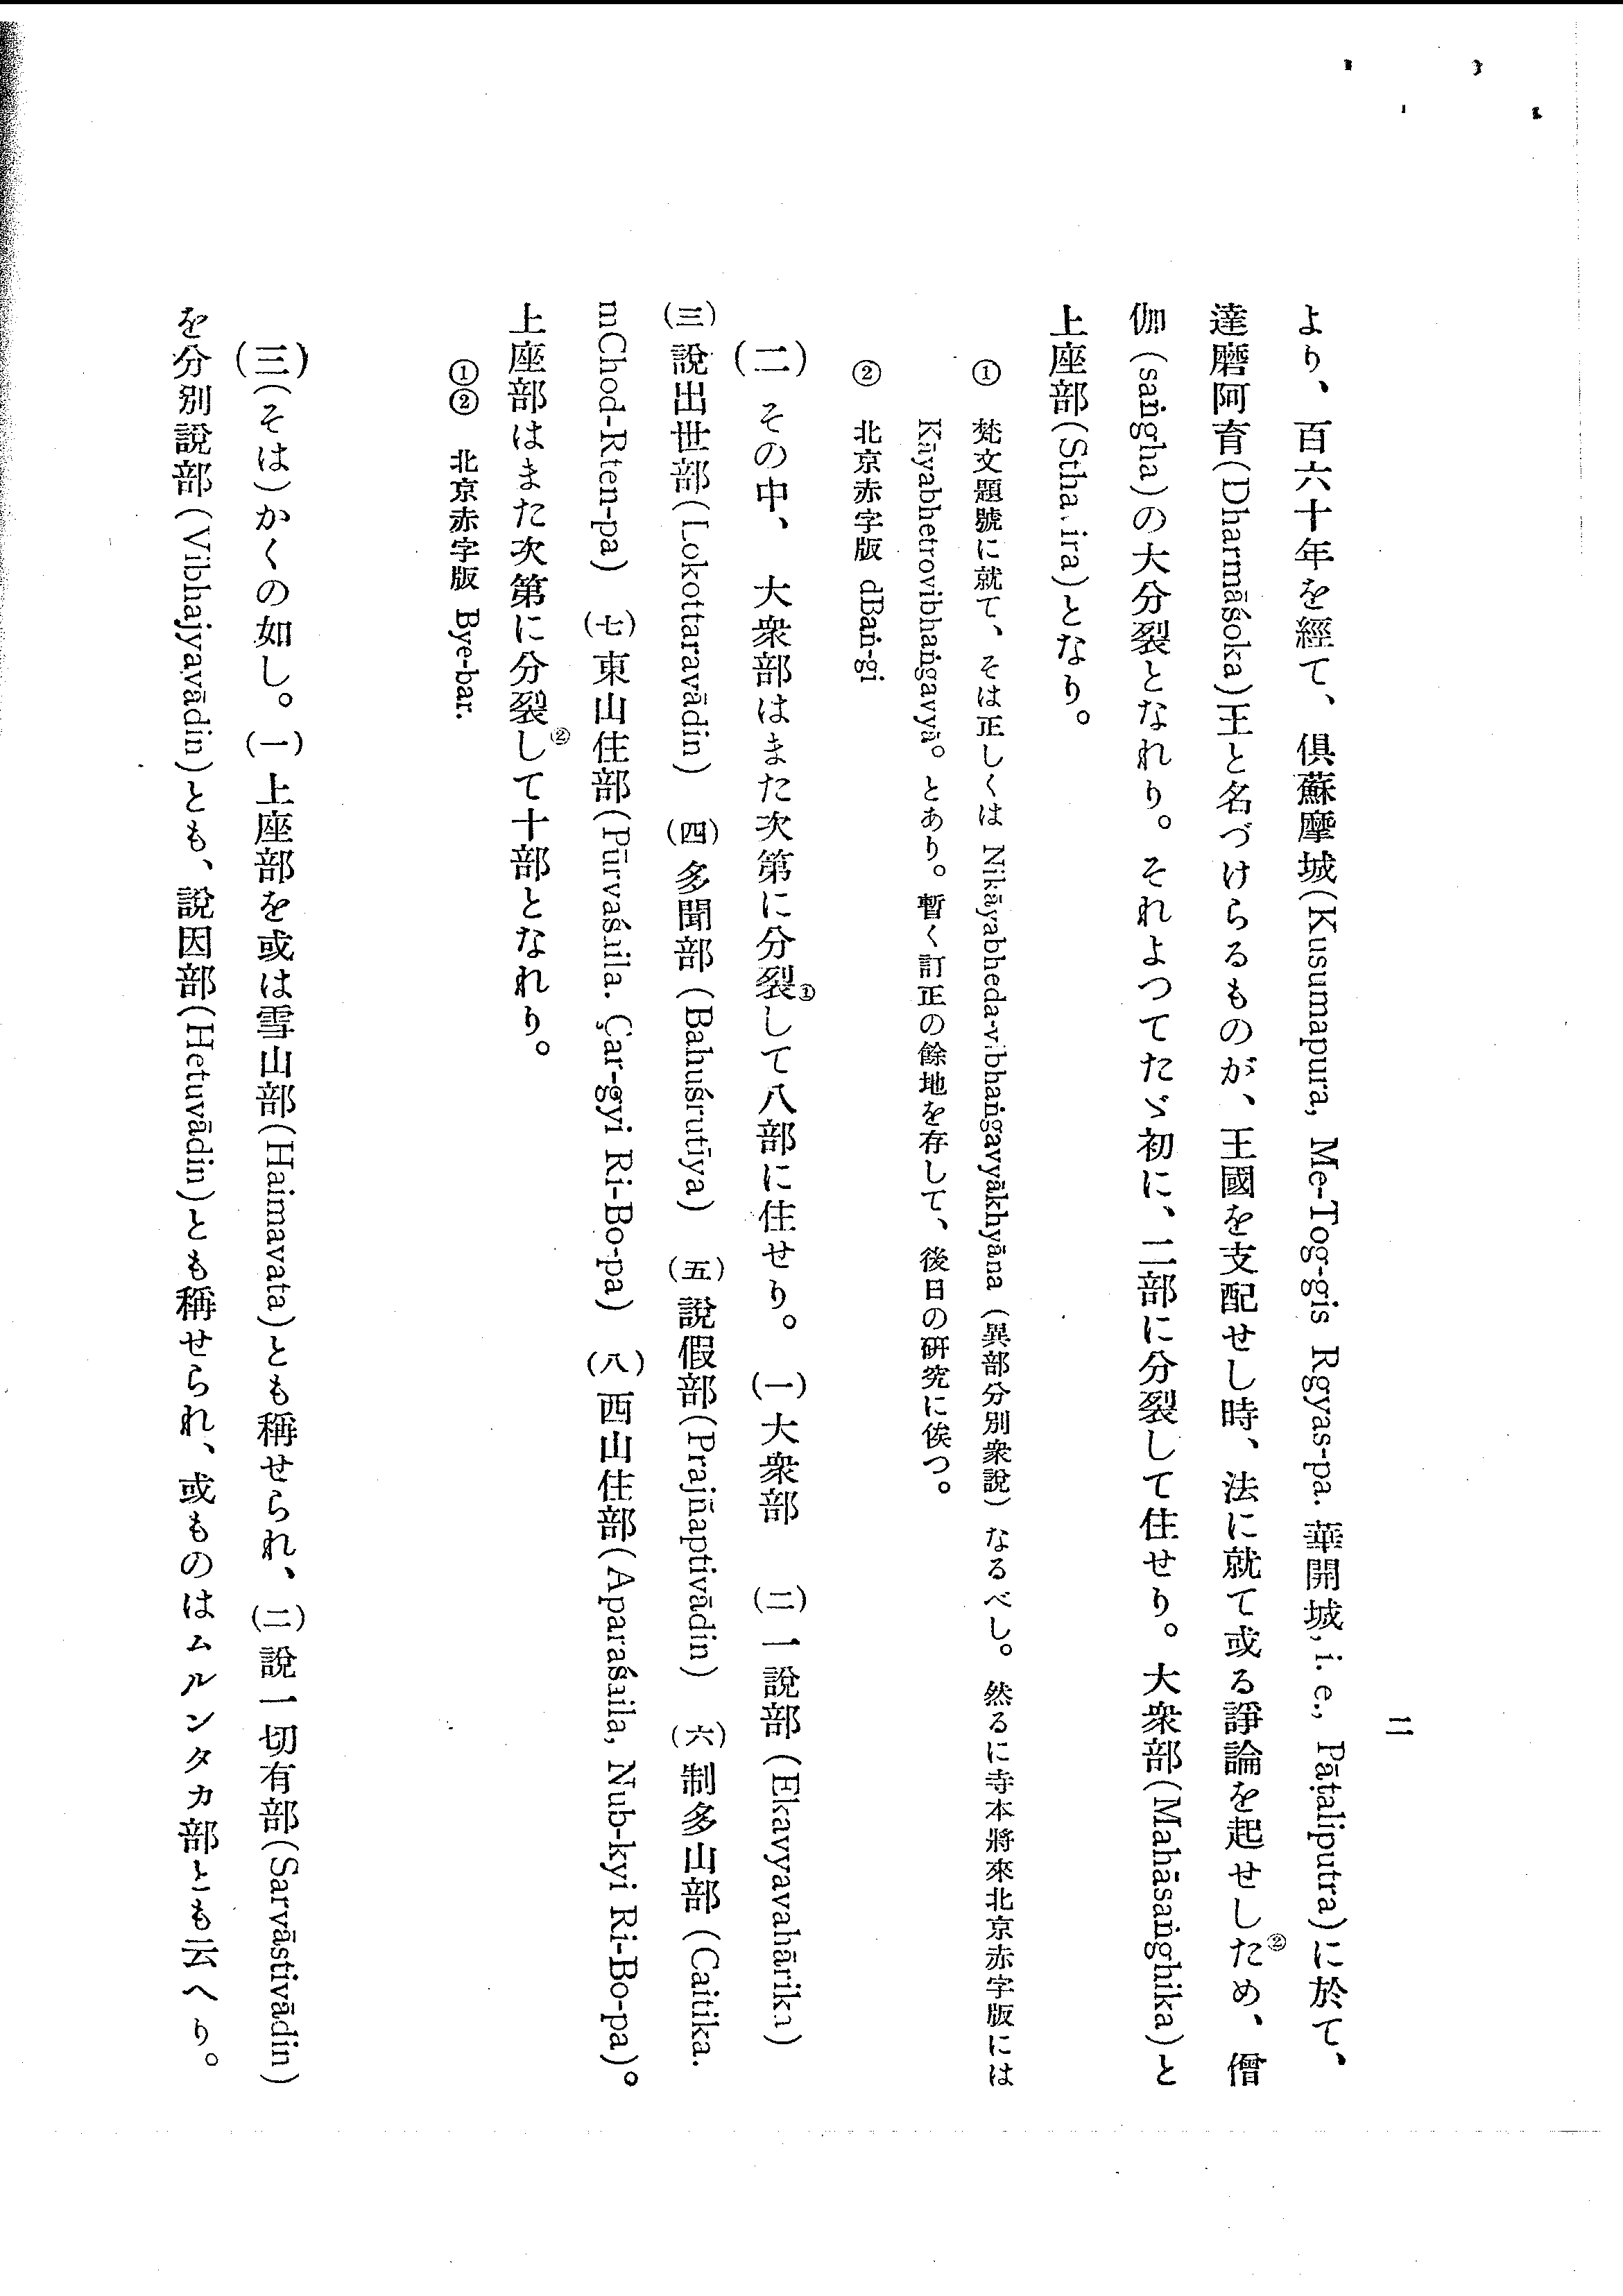 二
より、百六十年を經て、倶蘇摩城(Kusumapura, Me-Tog-gis Rgyas-pa. 華開城, i. e., Pāṭaliputra)に於て、
達磨阿育(Dharmāśoka)王と名づけらるものが、王國を支配せし時、法に就て或る諍論を起せしため、②僧
伽(saṅgha)の大分裂となれり。それよつてたゞ初に、二部に分裂して住せり。大衆部(Mahāsaṅghika)と
上座部(Stha ira)となり。
① 梵文題號に就て、そは正しくは Nikāyabheda-vibhaṅgavyākhyāna (異部分別衆說) なるべし。然るに寺本將來北京赤字版には
Kāyabhetrovibhaṅgavyā。とあり。暫く訂正の餘地を存して、後日の硏究に俟つ。
② 北京赤字版 dBaṅ-gi
(二) その中、大衆部はまた次第に分裂①して八部に住せり。(一)大衆部 (二)一說部(Ekavyavahārika)
(三)說出世部(Lokottaravādin) (四)多聞部(Bahuśrutīya) (五)說假部(Prajñaptivādin) (六)制多山部(Caitika.
mChod-Rten-pa) (七)東山住部(Pūrvaśaila. Çar-gyi Ri-Bo-pa) (八)西山住部(Aparaśaila, Nub-kyi Ri-Bo-pa)。
上座部はまた次第に分裂②して十部となれり。
①② 北京赤字版 Bye-bar.
(三)(そは)かくの如し。(一)上座部を或は雪山部(Haimavata)とも稱せられ、(二)說一切有部(Sarvāstivādin)
を分別說部(Vibhajyavādin)とも、說因部(Hetuvādin)とも稱せられ、或ものはムルンタカ部とも云へり。